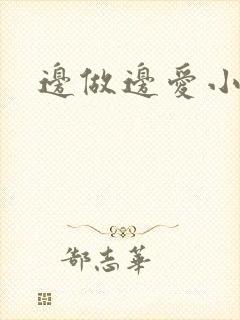 邊做邊愛小
郜志華